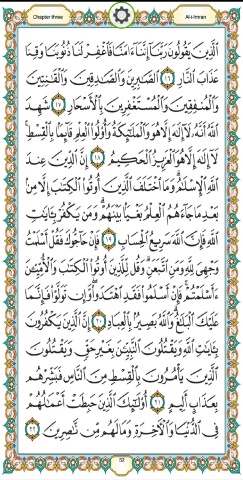 Chapter three Al-i-Imran
الَّذِينَ يَقُولُونَ رَبَّنَا إِنَّنَا ءَامَنَّا فَاغْفِرْ لَنَا ذُنُوبَنَا وَقِنَا
عَذَابَ النَّارِ ١٦ الصَّابِرِينَ وَالصَّادِقِينَ وَالْقَانِتِينَ
وَالْمُنفِقِينَ وَالْمُسْتَغْفِرِينَ بِالْأَسْحَارِ ١٧ شَهِدَ
اللَّهُ أَنَّهُ لَا إِلَهَ إِلَّا هُوَ وَالْمَلَائِكَةُ وَأُولُوا الْعِلْمِ قَائِمًا بِالْقِسْطِ
لَا إِلَهَ إِلَّا هُوَ الْعَزِيزُ الْحَكِيمُ ١٨ إِنَّ الدِّينَ عِندَ
اللَّهِ الْإِسْلَامُ وَمَا اخْتَلَفَ الَّذِينَ أُوتُوا الْكِتَابَ إِلَّا مِنْ
بَعْدِ مَا جَاءَهُمُ الْعِلْمُ بَغْيًا بَيْنَهُمْ وَمَن يَكْفُرْ بِآيَاتِ
اللَّهِ فَإِنَّ اللَّهَ سَرِيعُ الْحِسَابِ ١٩ فَإِنْ حَاجُّوكَ فَقُلْ أَسْلَمْتُ
وَجْهِيَ لِلَّهِ وَمَنِ اتَّبَعَنِ وَقُل لِّلَّذِينَ أُوتُوا الْكِتَابَ وَالْأُمِّيِّينَ
ءَأَسْلَمْتُمْ فَإِنْ أَسْلَمُوا فَقَدِ اهْتَدَوا وَّإِن تَوَلَّوْا فَإِنَّمَا
عَلَيْكَ الْبَلَاغُ وَاللَّهُ بَصِيرٌ بِالْعِبَادِ ٢٠ إِنَّ الَّذِينَ يَكْفُرُونَ
بِآيَاتِ اللَّهِ وَيَقْتُلُونَ النَّبِيِّينَ بِغَيْرِ حَقٍّ وَيَقْتُلُونَ
الَّذِينَ يَأْمُرُونَ بِالْقِسْطِ مِنَ النَّاسِ فَبَشِّرْهُم
بِعَذَابٍ أَلِيمٍ ٢١ أُولَئِكَ الَّذِينَ حَبِطَتْ أَعْمَالُهُمْ
فِي الدُّنْيَا وَالْآخِرَةِ وَمَا لَهُم مِّن نَّاصِرِينَ ٢٢
52